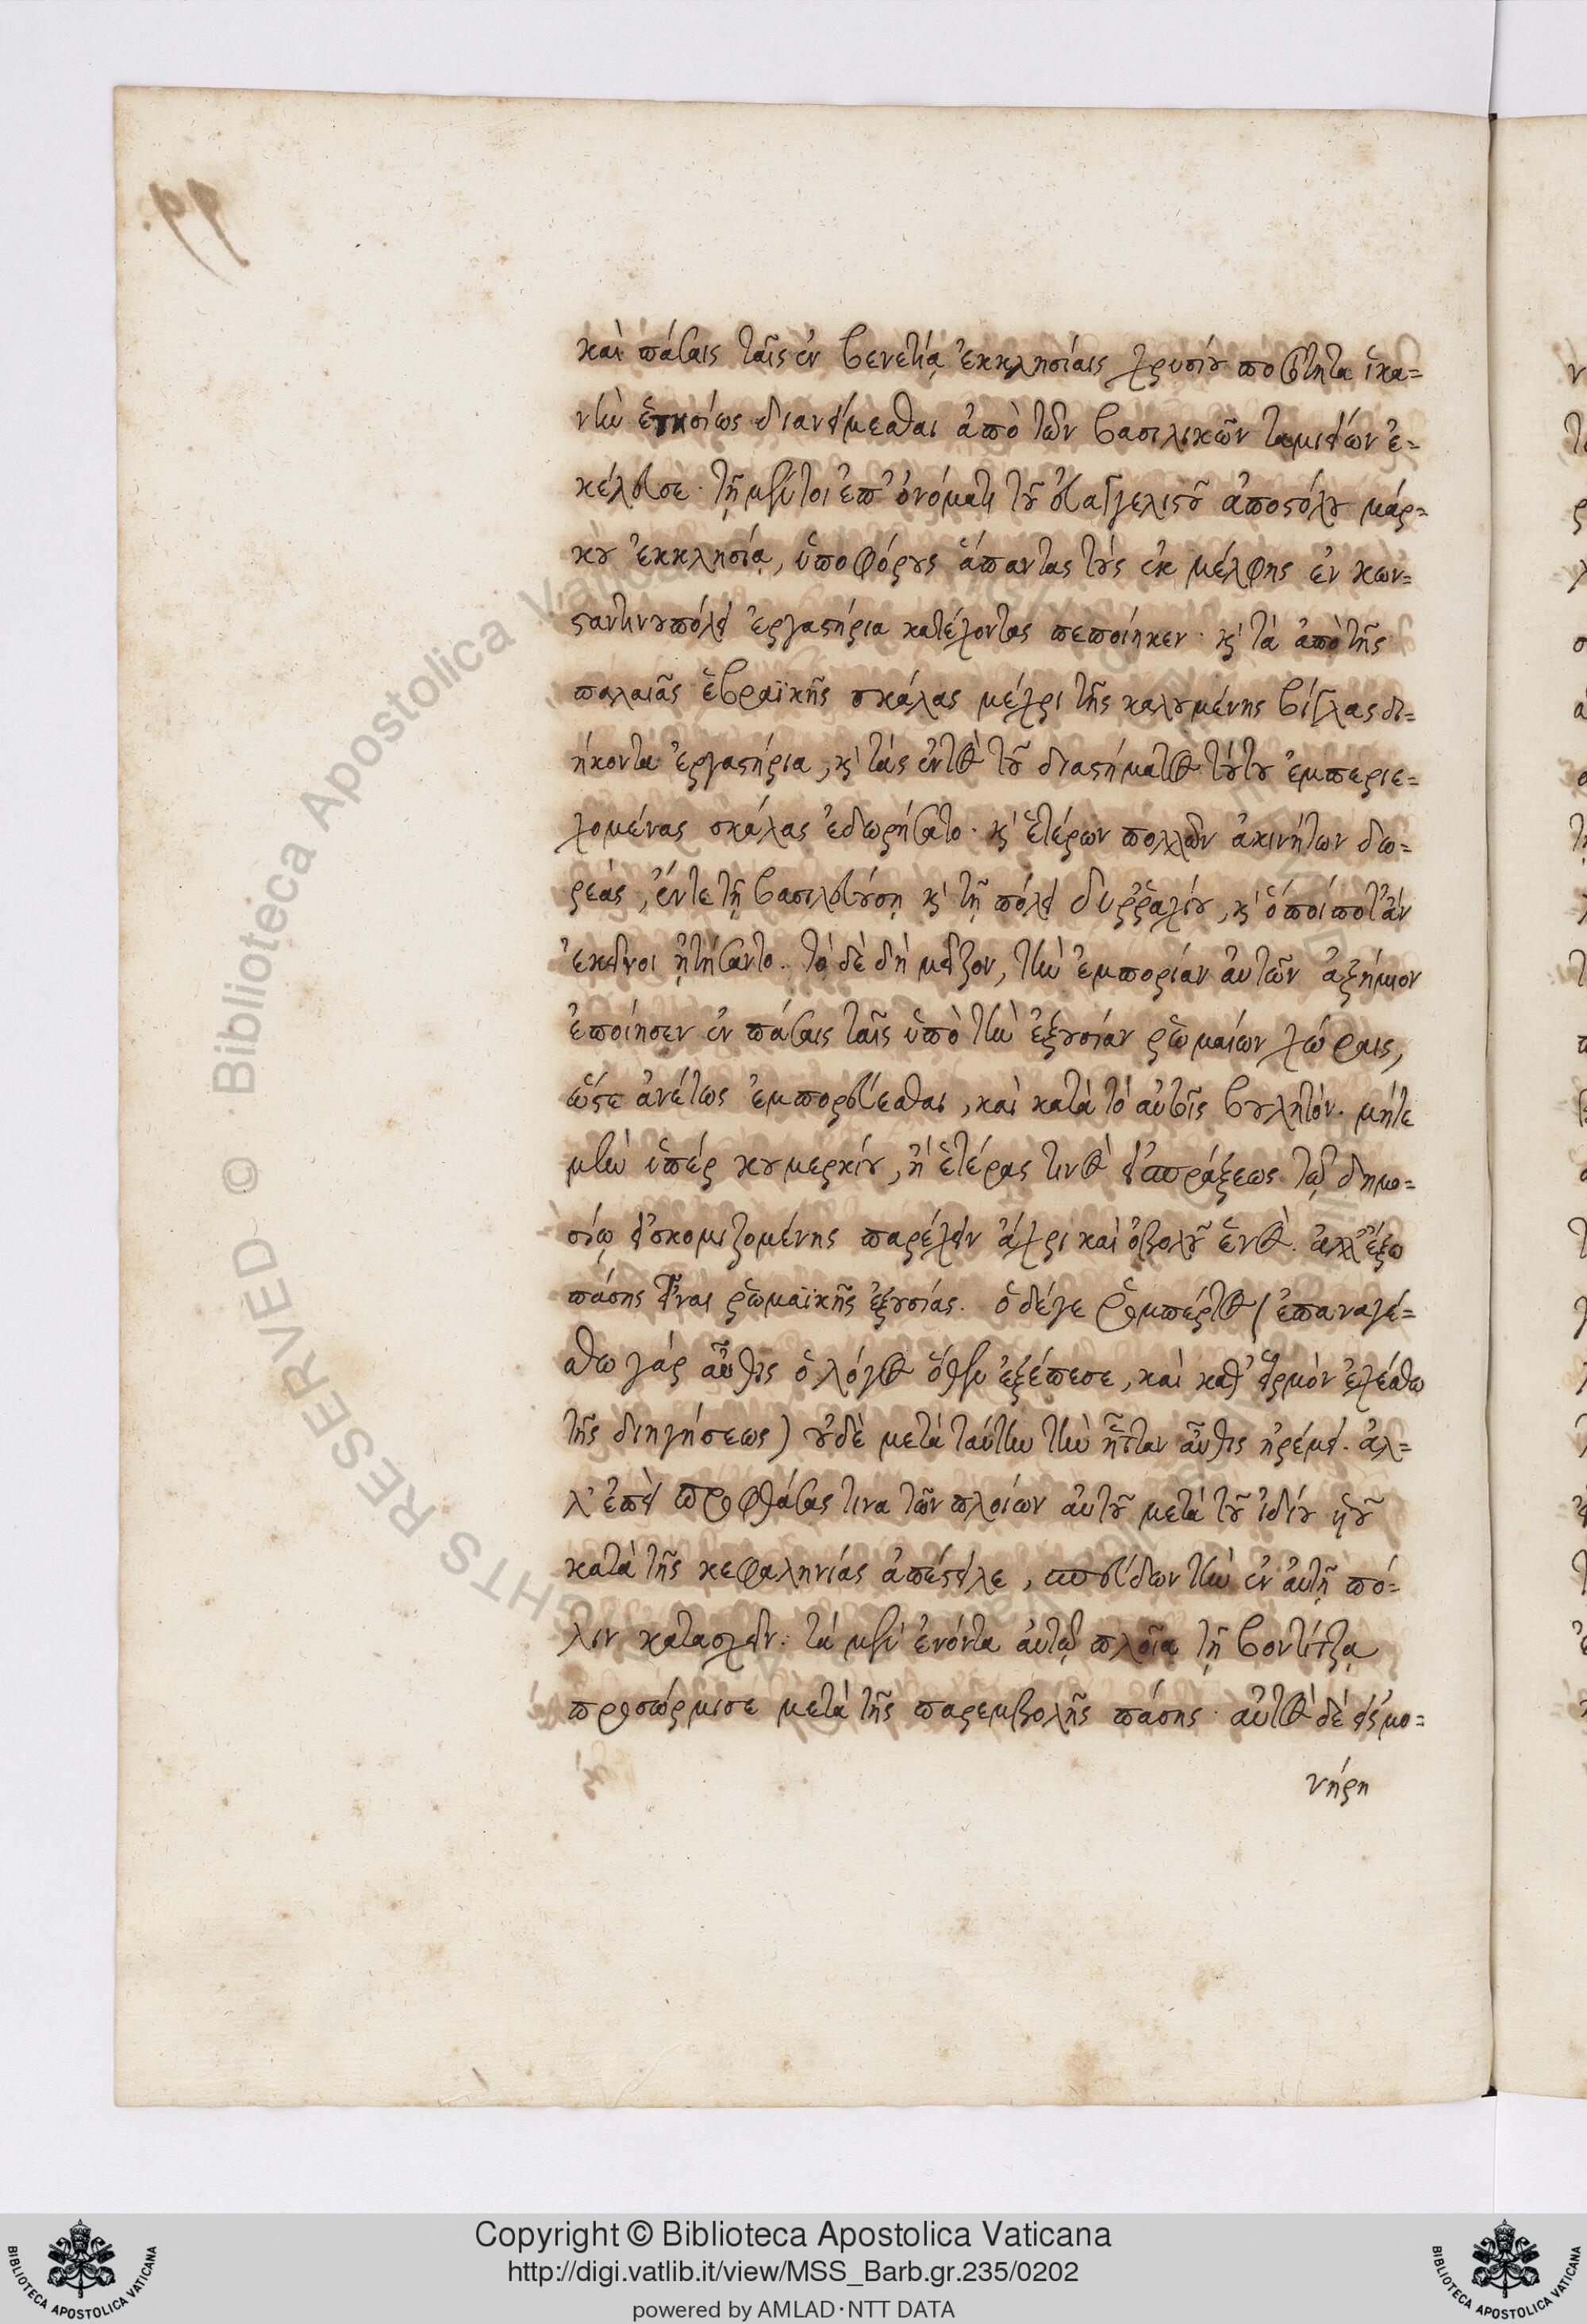 καὶ πάσαις ταῖς ἐν βενετίᾳ ἐκκλησίαις χρυσίου ποσότητα ἱκα=
νὴν ἐτησίως διανέμεσθαι ἀπὸ τῶν βασιλικῶν ταμιείων ἐ=
κέλευσε· τῇ μέντοι ἐπ' ὀνόματι τοῦ εὐαγγελιστοῦ ἀποστόλου μάρ=
κου ἐκκλησίᾳ, ὑποφόρους ἅπαντας τοὺς ἐκ μέλφης ἐν κων=
σταντινουπόλει ἐργαστήρια κατέχοντας πεποίηκεν· κ̀ τὰ ἀπὸ τῆς
παλαιᾶς ἑβραϊκῆς σκάλας μέχρι τῆς καλουμένης βίγλας δι=
ήκοντα ἐργαστήρια, κ̀ τὰς ἐντὸς τοῦ διαστήματος τούτου ἐμπεριε=
χομένας σκάλας ἐδωρήσατο· κ̀ ἑτέρων πολλῶν ἀκινήτων δω=
ρεὰς, ἔντε τῇ βασιλευούσῃ κ̀ τῇ πόλει δυῤῥαχίου, κ̀ ὁποίποτ' ἂν
ἐκεῖνοι ᾐτήσαντο. τὸ δὲ δὴ μεῖζον, τὴν ἐμπορίαν αὐτῶν ἀζήμιον
ἐποίησεν ἐν πάσαις ταῖς ὑπὸ τὴν ἐξουσίαν ῥωμαίων χώραις,
ὥστε ἀνέτως ἐμπορεύεσθαι, καὶ κατὰ τὸ αὐτοῖς βουλητόν. μήτε
μὴν ὑπὲρ κουμερκίου, ἢ ἑτέρας τινὸς εἰσπράξεως τῷ δημο=
σίῳ εἰσκομιζομένης παρέχειν ἄχρι καὶ ὀβολοῦ ἑνὸς. ἀλλ' ἔξω
πάσης εἶναι ῥωμαϊκῆς ἐξουσίας. ὁ δέγε ῥομπέρτος (ἐπαναγέ=
σθω γὰρ αὖθις ὁ λόγος ὅθεν ἐξέπεσε, καὶ καθ' εἱρμὸν ἐχέσθω
τῆς διηγήσεως) οὐδὲ μετὰ ταύτην τὴν ἧτταν αὖθις ἠρέμει. ἀλ=
λ' ἐπεὶ προφθάσας τινα τῶν πλοίων αὐτοῦ μετὰ τοῦ ἰδίου υἱοῦ
κατὰ τῆς κεφαληνίας ἀπέστειλε, σπεύδων τὴν ἐν αὐτῇ πό=
λιν κατασχεῖν· τὰ μὲν ἐνόντα αὐτῷ πλοῖα τῇ βοντίτζᾳ
προσώρμισε μετὰ τῆς παρεμβολῆς πάσης· αὐτὸς δὲ εἰς μο=
νήρη
Copyright © Biblioteca Apostolica Vaticana
http://digi.vatlib.it/view/MSS_Barb.gr.235/0202
powered by AMLAD·NTT DATA